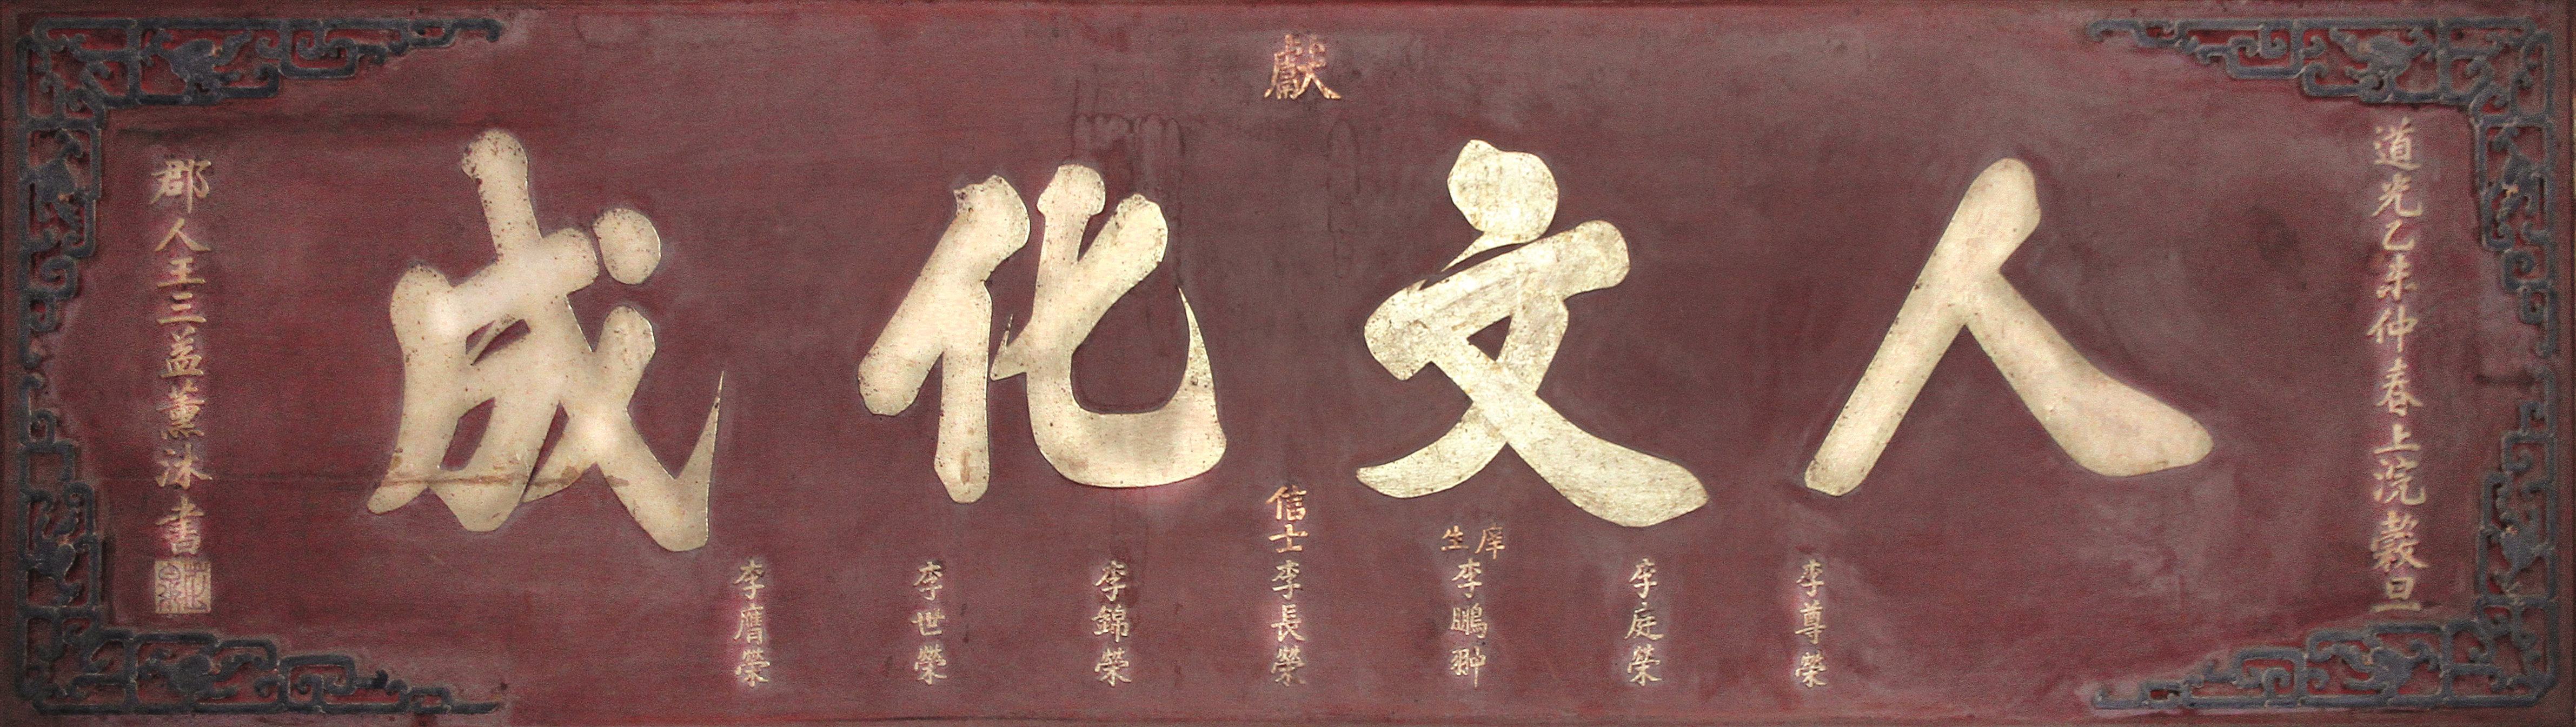 獻
道光乙未仲春上浣穀旦
人文化成
李尊榮
李庭榮
庠生李鵬翀
信士李長榮
李錦榮
李世榮
李膺榮
郡人王三益薰沐書